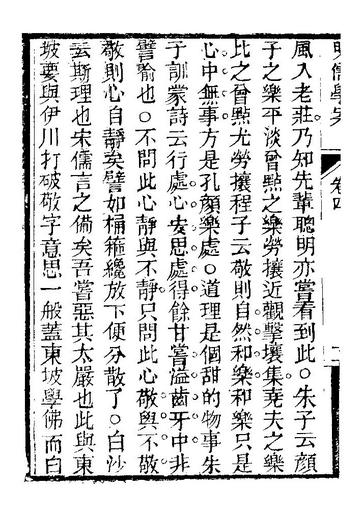 明儒學案 卷四
風入老莊乃知先輩聰明亦嘗看到此○朱子云顏
子之樂平淡曾點之樂勞攘近觀擊壤集堯夫之樂
比之曾點尤勞攘程子云敬則自然和樂和樂只是
心中無事方是孔顏樂處○道理是個甜的物事朱
子訓蒙詩云行處心安思處得餘甘嘗溢齒牙中非
譬喻也○不問此心靜與不靜只問此心敬與不敬
敬則心自靜矣譬如桶箍纔放下便分散了○白沙
云斯理也宋儒言之備矣吾嘗惡其太嚴也此與東
坡要與伊川打破敬字意思一般蓋東坡學佛而白